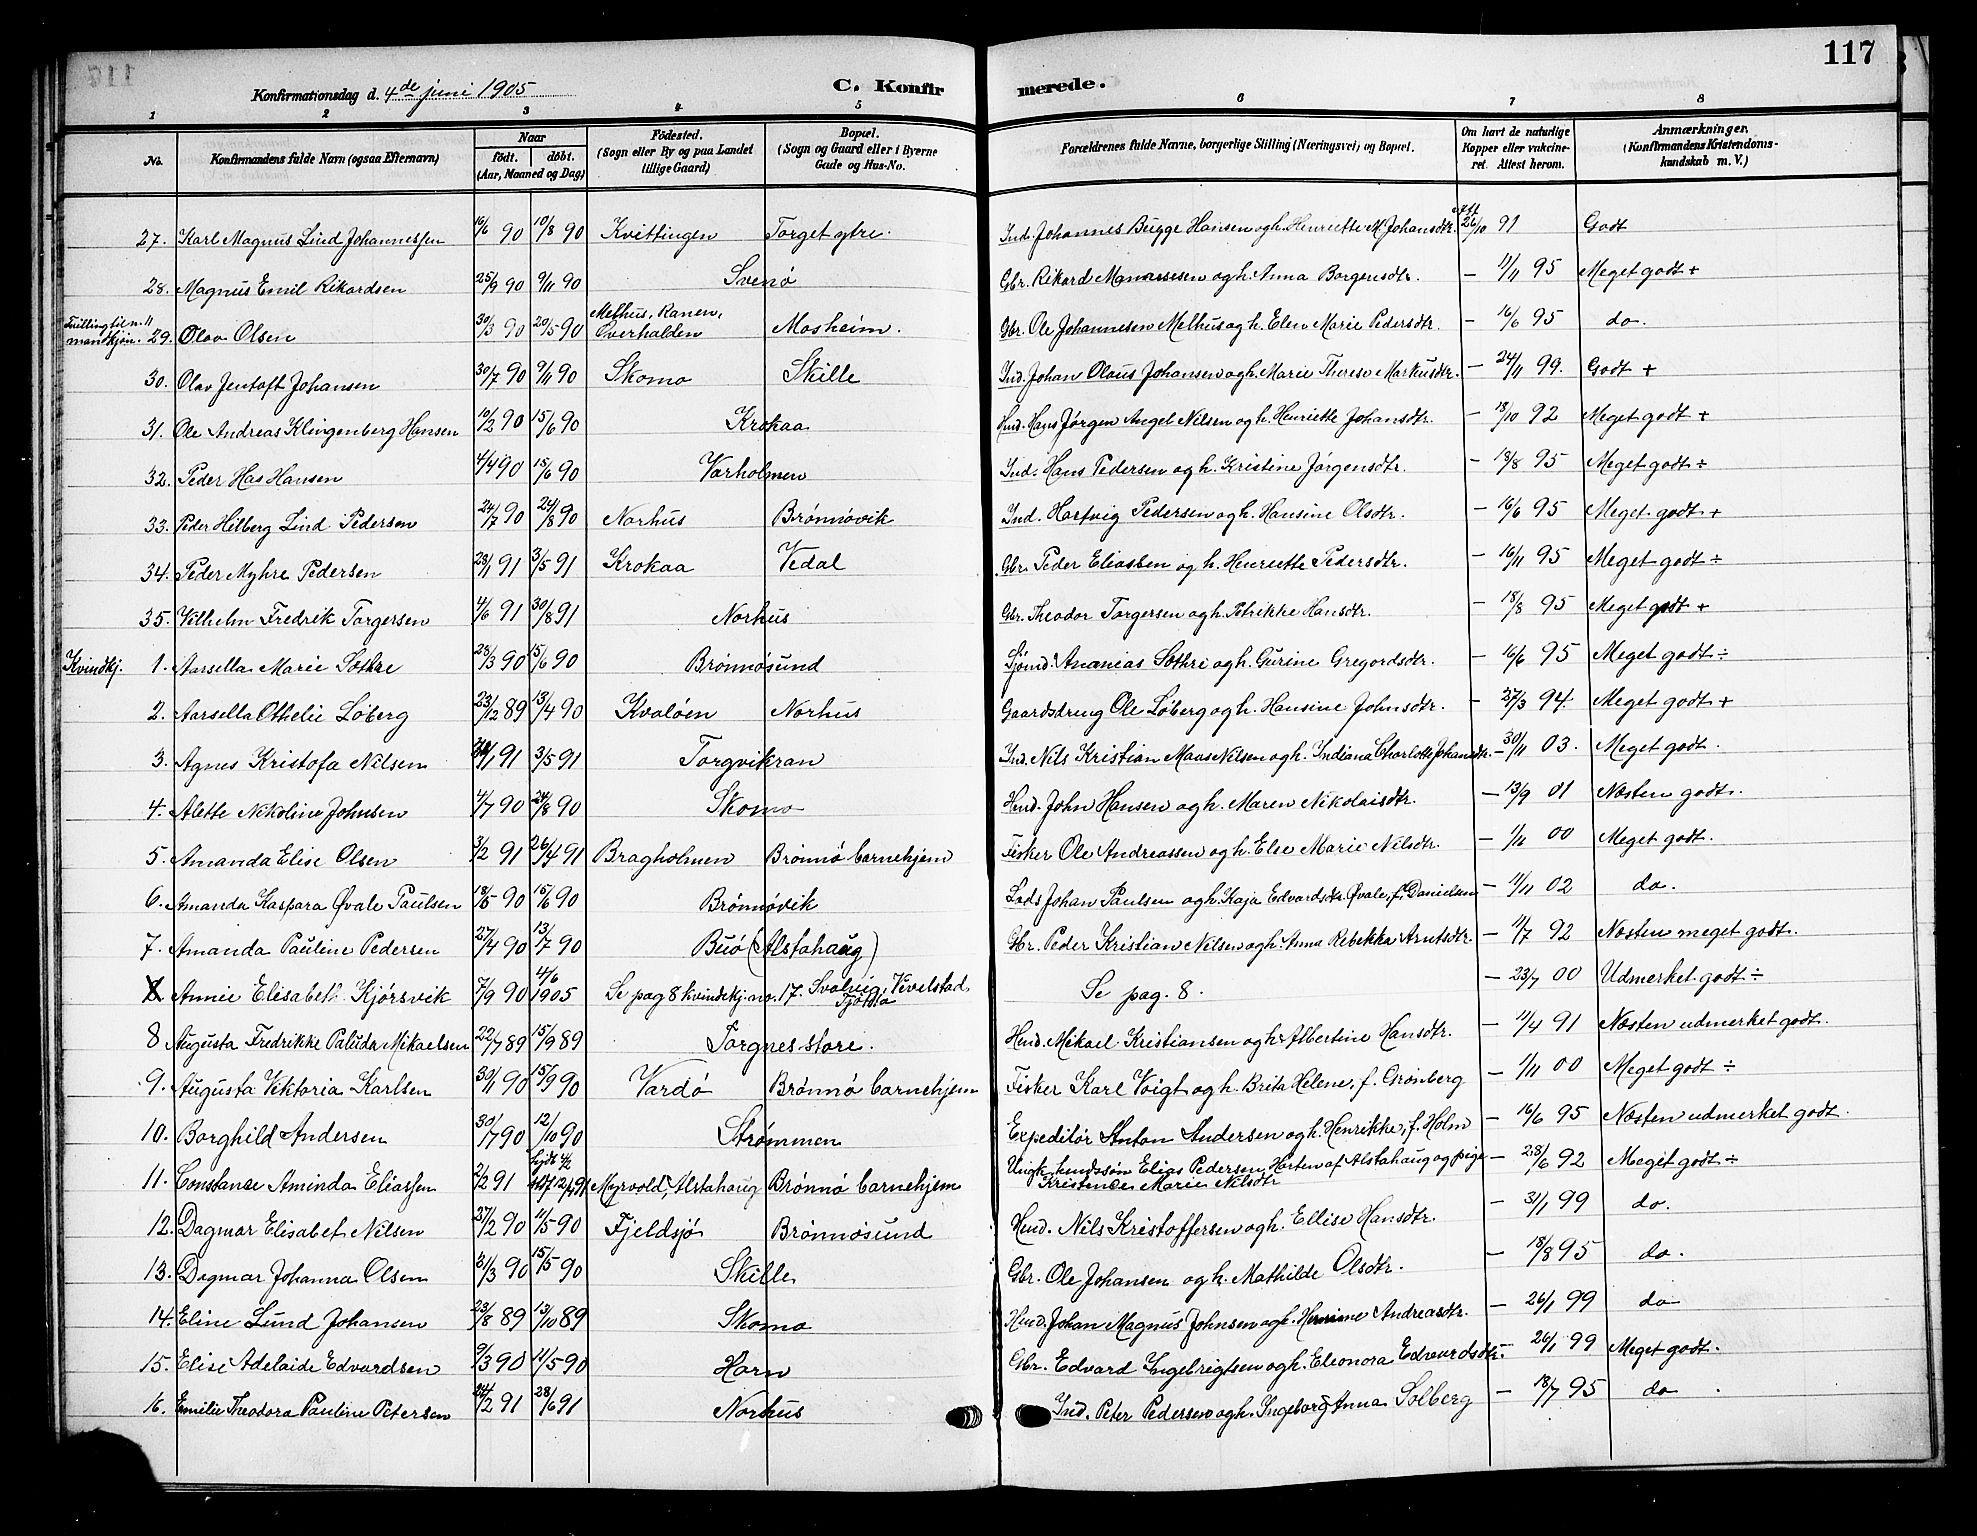 117
Konfirmationsdag d. 4de juni 1905
C. Konfirmerede.
1 2 3 4 5 6 7 8
No. Konfirmandens fulde Navn (ogsaa Efternavn) Naar født. døbt. (Aar, Maaned og Dag) Fødested. (Sogn eller By og paa Landet tillige Gaard) Bopæl. (Sogn og Gaard eller i Byerne Gade og Hus-No. Forældrenes fulde Navne, borgerlige Stilling (Næringsvei) og Bopæl. Om havt de naturlige Kopper eller vakcineret. Attest herom. Anmærkninger. (Konfirmandens Kristendomskundskab m. V.)
27. Karl Magnus Lind Johannessen 16/6 90 10/8 90 Kvittingen Torget ytre. Ind. Johannes Bugge Hansen og h. Henriette M. Johansdtr. 26/10 91 Godt
28. Magnus Emil Rikardsen 25/9 90 9/11 90 Svenø Gbr. Rikard Manassesen og h. Anna Borgersdtr. — 11/11 95 Meget godt +
Tvilling til n. 11 mandkjøn. 29. Olav Olsen 30/3 90 20/5 90 Melhus, Ranen, Overhalden Mosheim. Gbr. Ole Johannesen Melhus og h. Elen Marie Pedersdtr. — 16/6 95 do.
30. Olav Jentoft Johansen 30/7 90 9/11 90 Skomo Skille Ind. Johan Olaus Johansen og h. Marie Therese Markusdtr. — 24/11 99. Godt +
31. Ole Andreas Klingenberg Hansen 10/2 90 15/6 90 Krokaa Hmd. Hans Jørgen Angel Nilsen og h. Henriette Johansdtr. — 18/10 92 Meget godt +
32. Peder Has Hansen 4/4 90 15/6 90 Varholmen Ind. Hans Pedersen og h. Kristine Jørgensdtr. — 18/8 95 Meget godt ÷
33. Peder Helberg Lind Pedersen 24/7 90 24/8 90 Norhus Brønnøvik Ind. Hartvig Pedersen og h. Hansine Olsdtr. — 16/6 95 Meget godt +
34. Peder Myhre Pedersen 28/1 91 3/5 91 Krokaa Vedal Gbr. Peder Eliassen og h. Henriette Pedersdtr. — 16/11 95 Meget godt ÷
35. Vilhelm Fredrik Torgersen 4/6 91 30/8 91 Norhus Gbr. Theodor Torgersen og h. Petrikke Hansdtr. — 18/8 95 Meget godt +
Kvindkj. 1. Aarsella Marie Sæthre 28/3 90 15/6 90 Brønnøsund Sjømd. Ananias Sæthre og h. Gurine Gregordsdtr. — 16/6 95 Meget godt ÷
2. Aarsella Othelie Løberg 23/12 89 13/4 90 Kvaløen Norhus Gaardsdreng Ole Løberg og h. Hansine Johnsdtr. — 27/3 94. Meget godt +
3. Agnes Kristofa Nilsen 91 3/5 91 Torgvikran Ind. Nils Kristian Maas Nilsen og h. Indiana Charlotte Johansdtr. — 30/11 03. Meget godt.
4. Alette Nikoline Johnsen 4/7 90 24/8 90 Skomo Hmd. John Hansen og h. Maren Nikolaisdtr. — 13/9 01 Næsten godt.
5. Amanda Elise Olsen 3/2 91 26/4 91 Bragholmen Brønnø barnehjem Fisker Ole Andreassen og h. Else Marie Nilsdtr. — 1/11 00 Meget godt.
6. Amanda Kaspara Øvale Paulsen 18/5 90 15/6 90 Brønnøvik Lods Johan Paulsen og h. Kaja Edvardsdtr. Øvale, f. Danielsen — 11/11 02 do.
7. Amanda Pauline Pedersen 27/4 90 13/7 90 Buø (Alstahaug) Gbr. Peder Kristian Nilsen og h. Anna Rebekka Arntsdtr. — 11/7 92 Næsten meget godt.
8 Annie Elisabeth Kjørsvik 7/9 90 4/6 1905 Se pag 8 kvindekj. no. 17. Svalvig, Vevelstad Tjøtta Se pag. 8. — 23/7 00 Udmerket godt ÷
8 Augusta Fredrikke Paluda Mikaelsen 22/7 89 15/9 89 Torgnes store. Hmd. Mikael Kristiansen og h. Albertine Hansdtr. — 11/4 91 Næsten udmerket godt.
9. Augusta Viktoria Karlsen 30/1 90 15/9 90 Vardø Brønnø barnehjem Fisker Karl Voigt og h. Brita Helene, f. Grønberg — 1/11 00 Meget godt ÷
10. Borghild Andersen 30/7 90 12/10 90 Strømmen Expeditør Anton Andersen og h. Henrikke, f. Holm — 16/6 95 Næsten udmerket godt.
11. Constanse Aminda Eliassen 2/2 91 hjdt 4/2 Myrvold, Alstahaug Brønnø barnehjem Ungk. husmdssøn Elias Pedersen Horten af Alstahaug og pige Kristence Marie Nilsdtr — 28/6 92 Meget godt ÷
12. Dagmar Elisabet Nilsen 27/2 90 11/5 90 Fjeldsjø Brønnøsund Hmd. Nils Kristoffersen og h. Ellise Hansdtr. — 31/1 99 do.
13. Dagmar Johanna Olsen 31/3 90 15/5 90 Skille Gbr. Ole Johansen og h. Mathilde Olsdtr. — 18/8 95 do.
14. Eline Lund Johansen 23/8 89 13/10 89 Skomo Hmd. Johan Magnus Johnsen og h. Hermine Andreasdtr. — 26/1 99 do
15. Elise Adelaide Edvardsen 9/3 90 11/5 90 Horn Gbr. Edvard Ingebrigtsen og h. Eleonora Edvardsdtr. — 26/1 99 Meget godt.
16. Emilie Theodora Pauline Petersen 24/2 91 28/6 91 Norhus Ind. Peter Pedersen og h. Ingeborg Anna Solberg — 18/7 95 do.